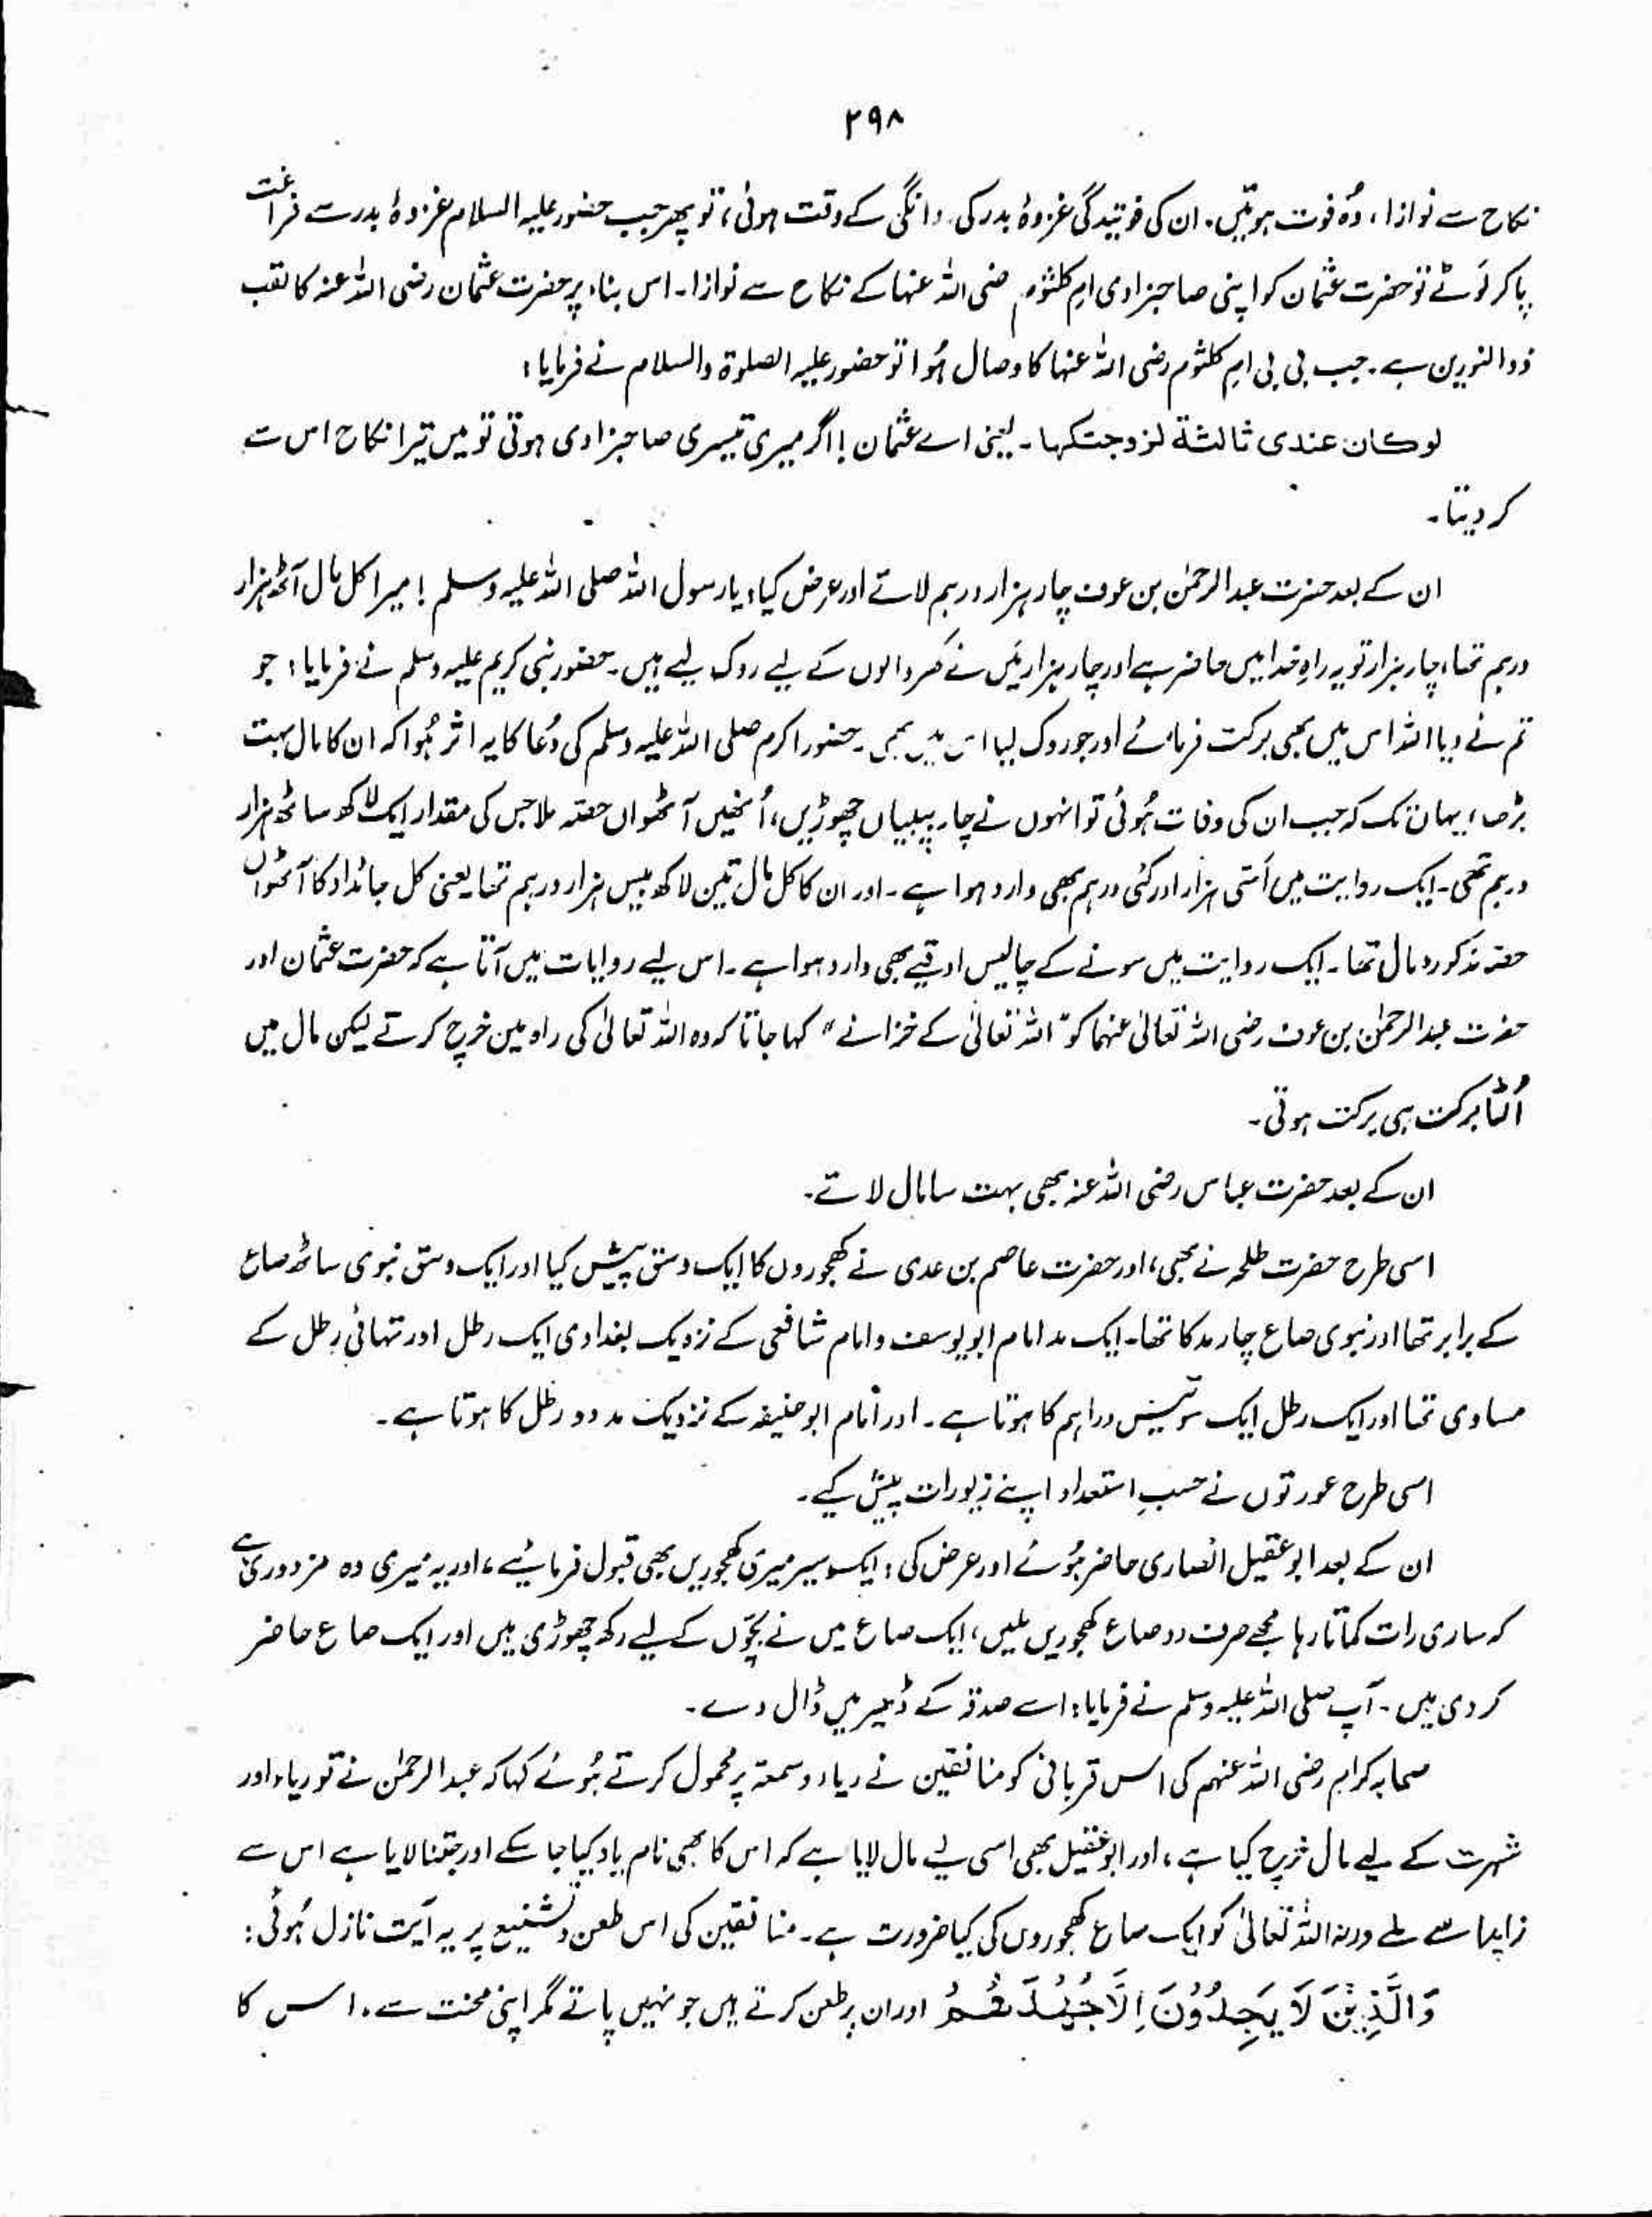 ۲۹۸
نکاح سے نوازا، وُہ فوت ہوئیں۔ ان کی فوتیدگی غزوۂ بدر کی روانگی کے وقت ہوئی، تو پھر جب حضور علیہ السلام غزوۂ بدر سے فراغت
پاکر لَوٹے تو حضرت عثمان کو اپنی صاحبزادی امِ کلثوم رضی اللہ عنہا کے نکاح سے نوازا۔ اس بناء پر حضرت عثمان رضی اللہ عنہ کا لقب
ذوالنورین ہے۔ جب بی بی امِ کلثوم رضی اللہ عنہا کا وصال ہُوا تو حضور علیہ الصلوۃ والسلام نے فرمایا:
لوكان عندی ثالثة لزوجتكها۔ یعنی اے عثمان! اگر میری تیسری صاحبزادی ہوتی تو میں تیرا نکاح اس سے
کر دیتا۔
ان کے بعد حضرت عبدالرحمٰن بن عوف چار ہزار درہم لائے اور عرض کیا: یارسول اللہ صلی اللہ علیہ وسلم! میرا کل مال آٹھ ہزار
درہم تھا، چار ہزار تو یہ راہِ خدا میں حاضر ہے اور چار ہزار مَیں نے گھر والوں کے لیے روک لیے ہیں۔ حضور نبی کریم علیہ وسلم نے فرمایا: جو
تم نے دیا اللہ اس میں بھی برکت فرمائے اور جو روک لیا اس میں بھی۔ حضور اکرم صلی اللہ علیہ وسلم کی دُعا کا یہ اثر ہُوا کہ ان کا مال بہت
بڑھا، یہاں تک کہ جب ان کی وفات ہُوئی تو انہوں نے چار بیبیاں چھوڑیں، اُنھیں آٹھواں حصّہ ملا جس کی مقدار ایک لاکھ ساٹھ ہزار
درہم تھی۔ ایک روایت میں اَسّی ہزار اور کئی درہم بھی وارد ہوا ہے۔ اور ان کا کل مال تین لاکھ بیس ہزار درہم تھا یعنی کل جائداد کا آٹھواں
حصّہ مذکورہ مال تھا۔ ایک روایت میں سونے کے چالیس اوقیے بھی وارد ہوا ہے۔ اس لیے روایات میں آتا ہے کہ حضرت عثمان اور
حضرت عبدالرحمٰن بن عوف رضی اللہ تعالیٰ عنہما کو "اللہ تعالیٰ کے خزانے" کہا جاتا کہ وہ اللہ تعالیٰ کی راہ میں خرچ کرتے لیکن مال میں
اُلٹا برکت ہی برکت ہوتی۔
ان کے بعد حضرت عباس رضی اللہ عنہ بھی بہت سا مال لائے۔
اسی طرح حضرت طلحہ نے بھی، اور حضرت عاصم بن عدی نے کھجوروں کا ایک وسق پیش کیا اور ایک وسق نبوی ساٹھ صاع
کے برابر تھا اور نبوی صاع چار مد کا تھا۔ ایک مد امام ابویوسف و امام شافعی کے نزدیک بغدادی ایک رطل اور تہائی رطل کے
مساوی تھا اور ایک رطل ایک سو تیس دراہم کا ہوتا ہے۔ اور امام ابوحنیفہ کے نزدیک مد دو رطل کا ہوتا ہے۔
اسی طرح عورتوں نے حسبِ استعداد اپنے زیورات پیش کیے۔
ان کے بعد ابوعقیل انصاری حاضر ہُوئے اور عرض کی: ایک سیر میری کھجوریں بھی قبول فرمائیے، اور یہ میری وہ مزدوری ہے
کہ ساری رات کماتا رہا مجھے صرف دو صاع کھجوریں ملیں، ایک صاع میں نے بچّوں کے لیے رکھ چھوڑی ہیں اور ایک صاع حاضر
کر دی ہیں۔ آپ صلی اللہ علیہ وسلم نے فرمایا: اسے صدقہ کے ڈھیر میں ڈال دے۔
صحابہ کرام رضی اللہ عنہم کی اس قربانی کو منافقین نے ریاء و سمعۃ پر محمول کرتے ہُوئے کہا کہ عبدالرحمٰن نے تو ریاء اور
شہرت کے لیے مال خرچ کیا ہے، اور ابوعقیل بھی اسی لیے مال لایا ہے کہ اس کا بھی نام یاد کیا جا سکے اور جتنا لایا ہے اس سے
زاید اسے ملے ورنہ اللہ تعالیٰ کو ایک صاع کھجوروں کی کیا ضرورت ہے۔ منافقین کی اس طعن و تشنیع پر یہ آیت نازل ہُوئی:
وَالَّذِيْنَ لَا يَجِدُوْنَ اِلَّا جُهْدَهُمْ اور ان پر طعن کرتے ہیں جو نہیں پاتے مگر اپنی محنت سے۔ اس کا